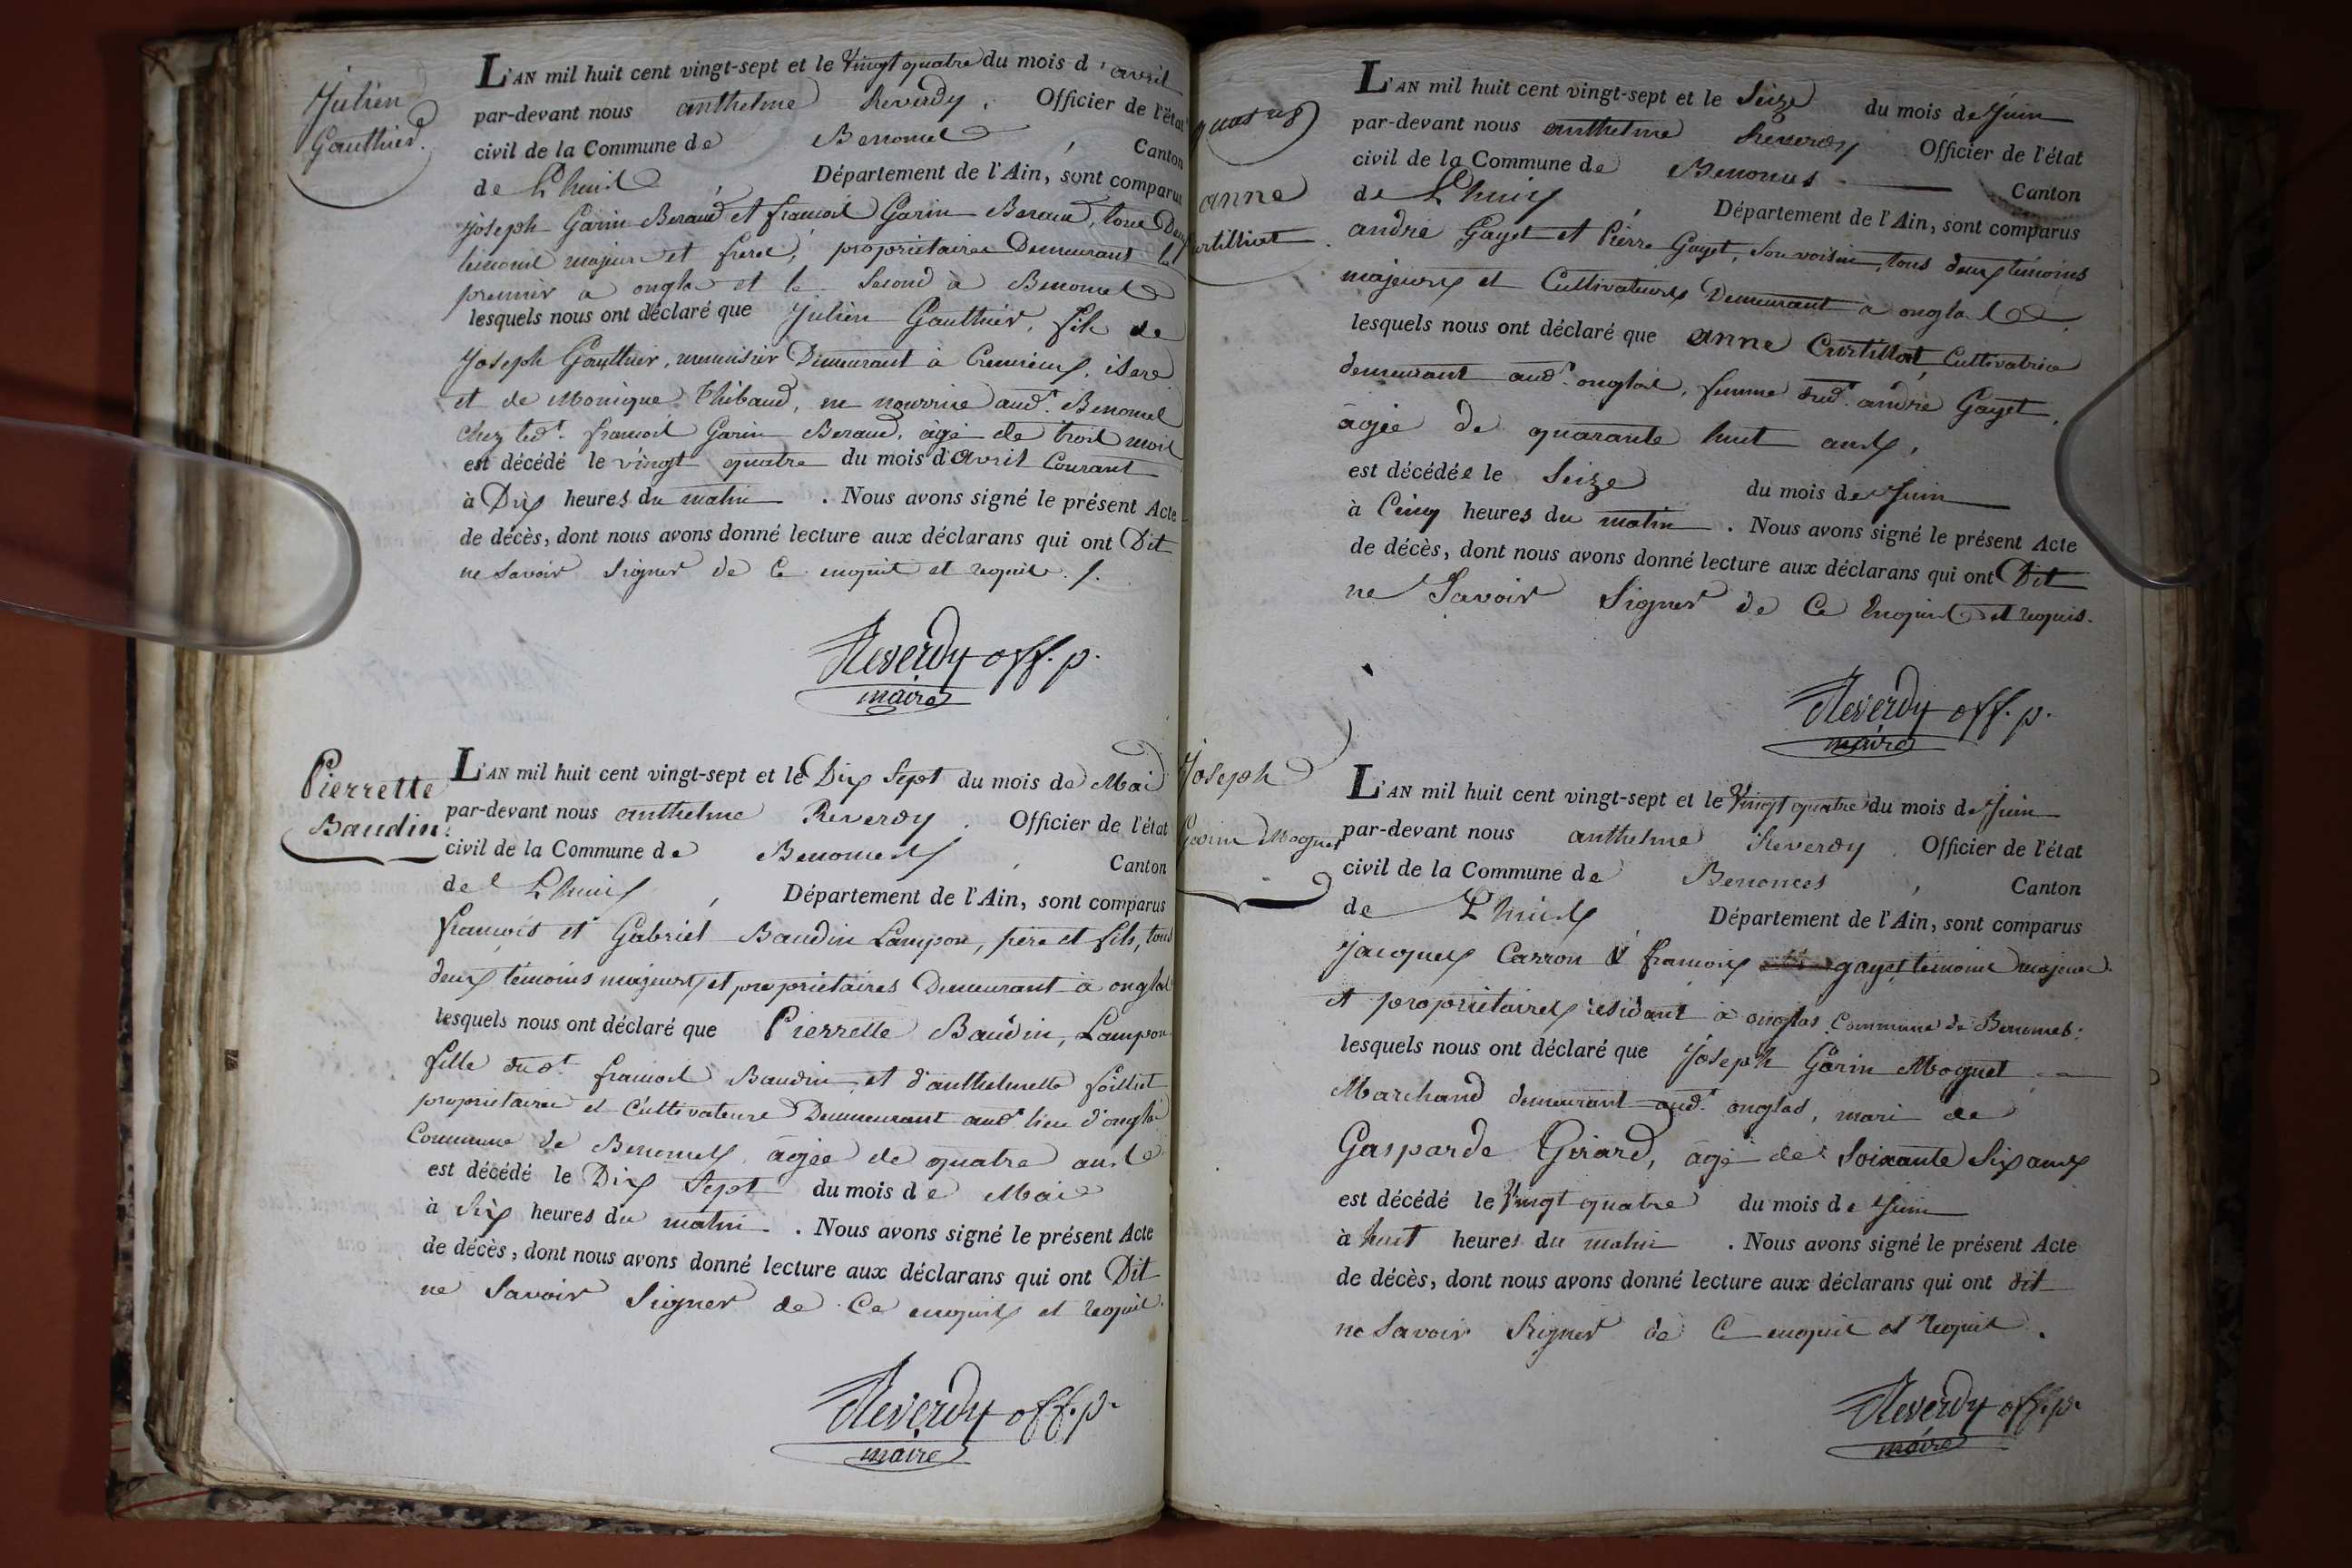 Julien
Gauthier.
L'AN mil huit cent vingt-sept et le Vingt quatre du mois d'avril
par-devant nous anthelme Reverdy, Officier de l'état
civil de la Commune de Benonces, Canton
de Lhuis, Département de l'Ain, sont comparus
joseph Garin Beraud et francois Garin Beraud, tous Deux
temoins majeurs et freres, propriétaires Demeurant le
premier a onglas et le Second à Benonces
lesquels nous ont déclaré que Julien Gauthier, fils de
Joseph Gauthier, menuisier Demeurant à Cremieux, isere
et de Monique Thibaud, en nourrice aud.t Benonces
chez led.t francois Garin Beraud, âgé de trois mois
est décédé le vingt quatre du mois d'avril Courant
à Dix heures du matin. Nous avons signé le présent Acte
de décès, dont nous avons donné lecture aux déclarans qui ont Dit
ne Savoir Signer de Ce enquis et requis.
Reverdy off. p.
maire
Pierrette
Baudin.
L'AN mil huit cent vingt-sept et le Dix Sept du mois de Mai
par-devant nous anthelme Reverdy. Officier de l'état
civil de la Commune de Benonces, Canton
de Lhuis, Département de l'Ain, sont comparus
francois et Gabriel Baudin Lampon, père et fils, tous
deux témoins majeurs et propriétaires Demeurant à onglas
lesquels nous ont déclaré que Pierrette Baudin, Lampon
fille dud.t francois Baudin et d'anthelmette
propriétaires et Cultivateurs Demeurant aud.t lieu d'onglas
Commune de Benonces, âgée de quatre ans
est décédé le Dix Sept du mois de Mai
à Six heures du matin. Nous avons signé le présent Acte
de décès, dont nous avons donné lecture aux déclarans qui ont Dit
ne Savoir Signer de Ce enquis et requis.
Reverdy off. p.
maire
anne
L'AN mil huit cent vingt-sept et le Seize du mois de Juin
par-devant nous anthelme Reverdy Officier de l'état
civil de la Commune de Benonces Canton
de Lhuis, Département de l'Ain, sont comparus
andré Gayet et Pierre Gayet, Son voisin, tous deux témoins
majeurs et Cultivateurs Demeurant à onglas
lesquels nous ont déclaré que anne Curtilliat, Cultivatrice
demeurant aud.t onglas, femme dud.t andré Gayet,
âgée de quarante huit ans,
est décédée le Seize du mois de Juin
à Cinq heures du matin. Nous avons signé le présent Acte
de décès, dont nous avons donné lecture aux déclarans qui ont Dit
ne Savoir Signer de Ce Enquis et requis.
Reverdy off. p.
maire
Joseph
Garin Moguet
L'AN mil huit cent vingt-sept et le Vingt quatre du mois de Juin
par-devant nous anthelme Reverdy. Officier de l'état
civil de la Commune de Benonces, Canton
de Lhuis, Département de l'Ain, sont comparus
Jacques Carron & francois gayet temoins majeurs
et propriétaires résidant à onglas Commune de Benonces:
lesquels nous ont déclaré que Joseph Garin Moguet
Marchand demeurant aud.t onglas, mari de
Gasparde Girard, âgé de Soixante Six ans
est décédé le Vingt quatre du mois de Juin
à huit heures du matin. Nous avons signé le présent Acte
de décès, dont nous avons donné lecture aux déclarans qui ont dit
ne Savoir Signer de Ce enquis et requis.
Reverdy off. p.
maire